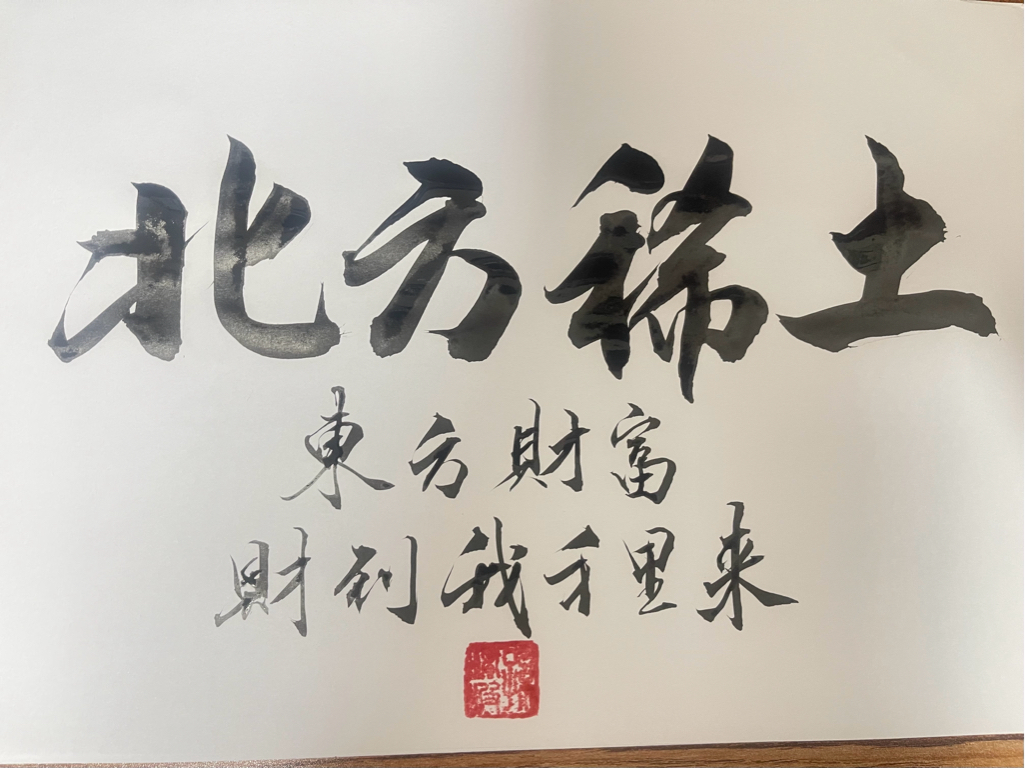 北方稀土
東方財富
財到我手里来